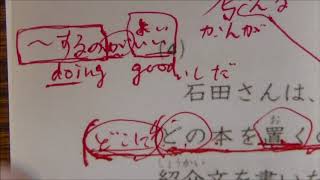 かんが
よい
〜するのがいい
(4)
doing good
いしだ
石田さんは、
お
どこに どの本を置くの
しょうかい
紹介文を書いた